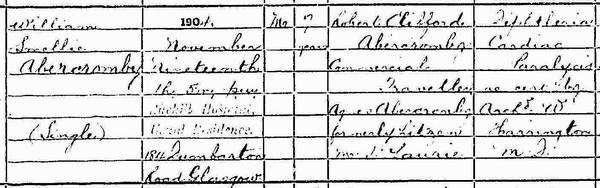 William
Smellie
Abercromby
(Single)
1904.
November
Nineteenth
Hospital,
Usual Residence.
184 Dumbarton
Road Glasgow
M
7
years
Robert Clifford
Abercromby
Commercial
Traveller
Agnes Abercromby
formerly
m.s. Laurie
Diphtheria
Cardiac
Paralysis
as cert by
Arch^d W
Harrington